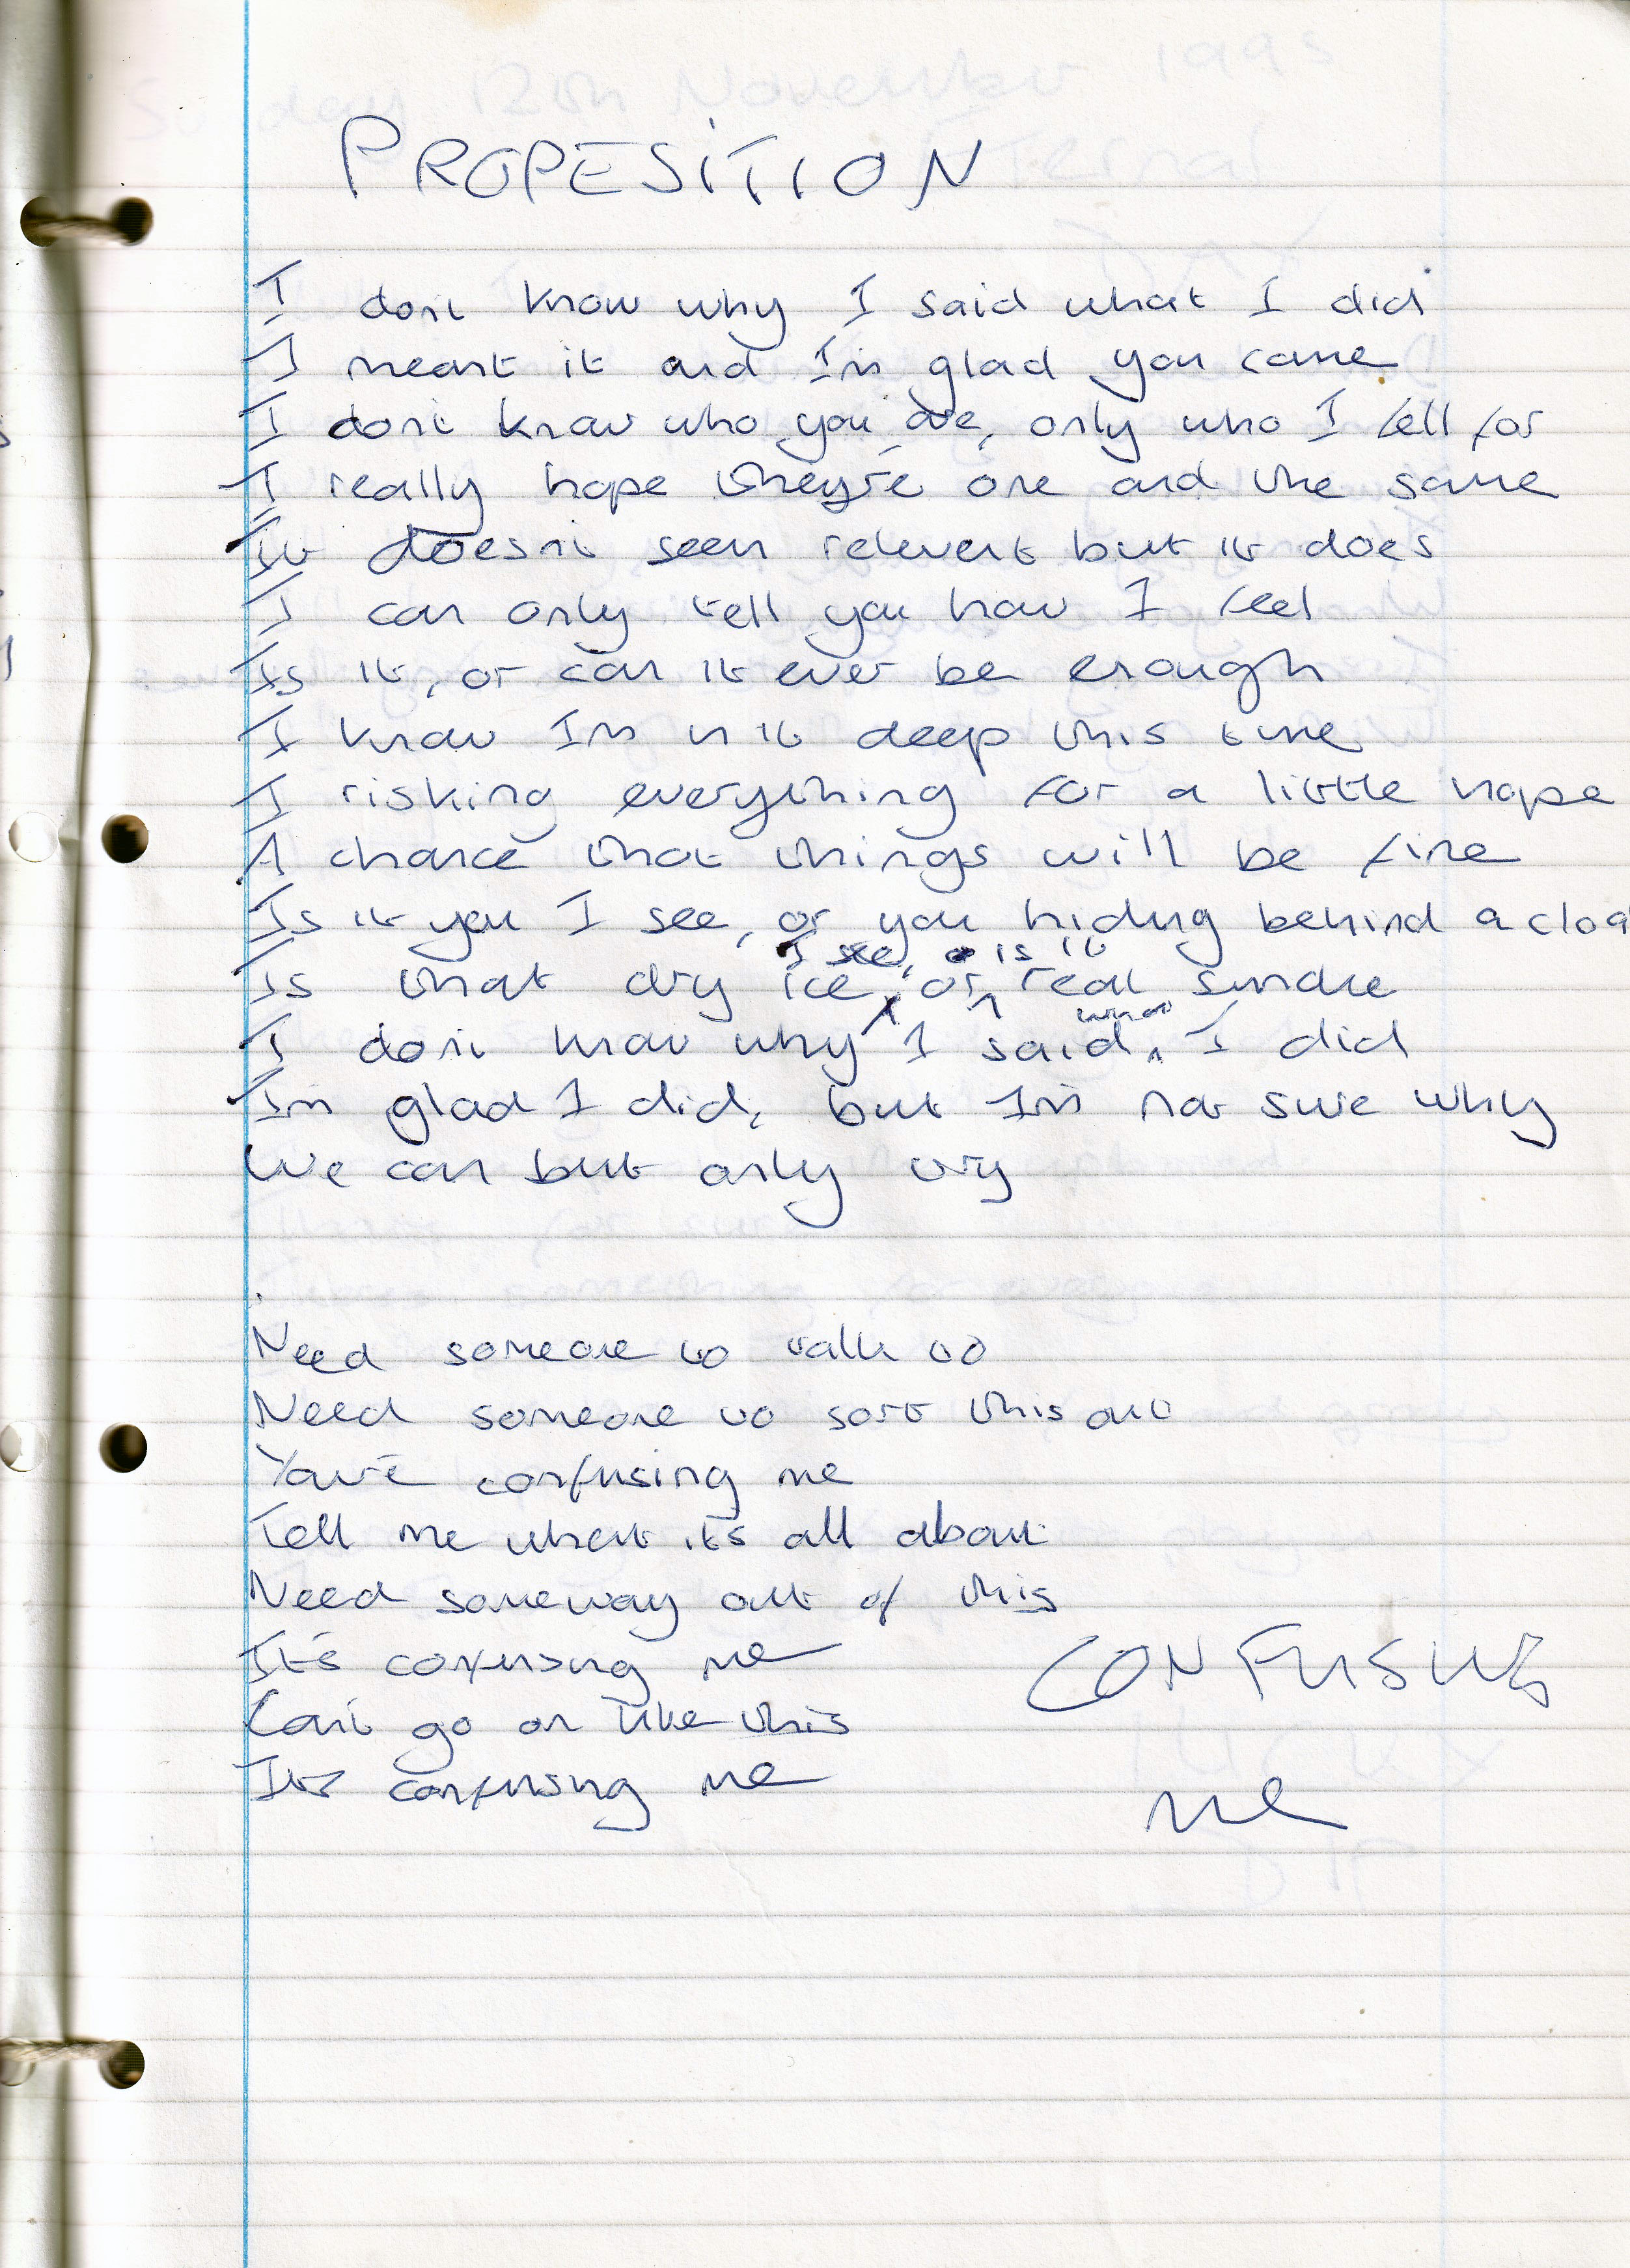 PROPESITION
I don't know why I said what I did
I meant it and I'm glad you came
I don't know who you are, only who I fell for
I really hope they're one and the same
It doesn't seem relevent but it does
I can only tell you how I feel
Is it, or can it ever be enough
I know I'm in it deep this time
I risking everything for a little hope
A chance that things will be fine
Is it you I see, or you hiding behind a cloa
I see, is it
Is that dry ice, or real smoke
what
I don't know why I said, I did
I'm glad I did, but I'm not sure why
We can but only try
Need someone to talk to
Need someone to sort this out
You're confusing me
Tell me what it's all about
Need someway out of this
It's confusing me
CONFUSING
Can't go on like this
It's confusing me
me